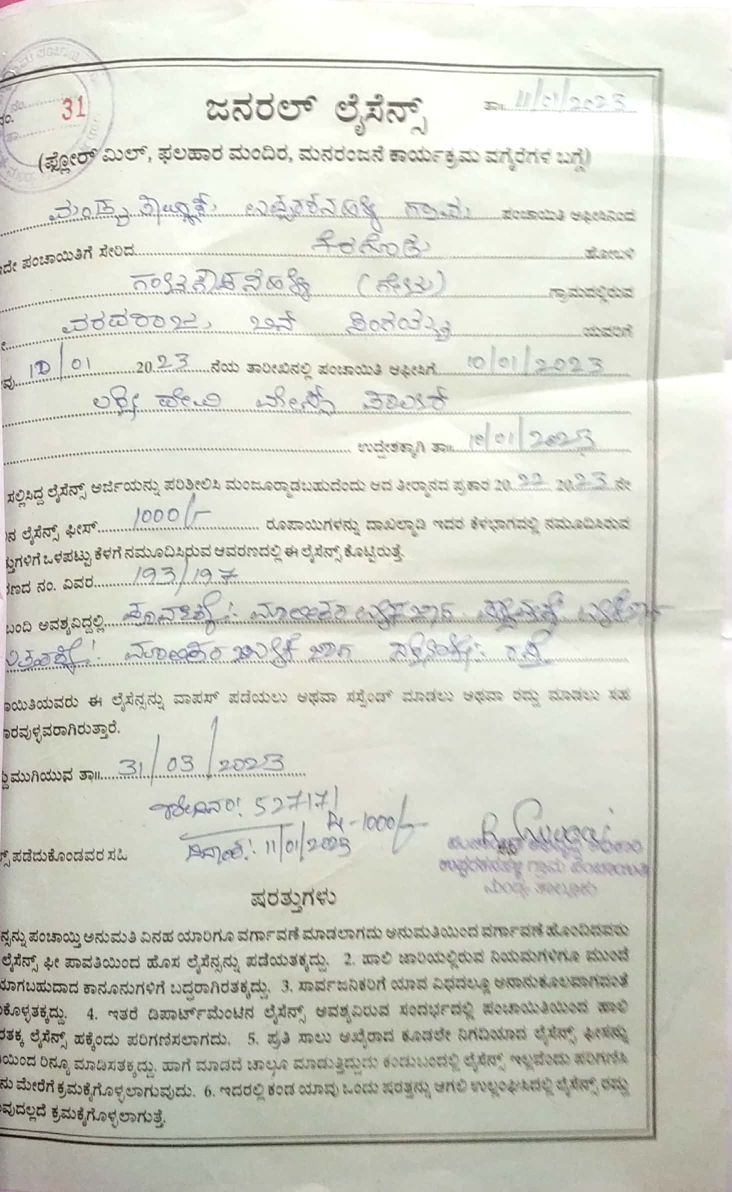 ನಂ. 31
ಜನರಲ್ ಲೈಸೆನ್ಸ್ ತಾ॥ 11/01/2023
(ಫ್ಲೋರ್ ಮಿಲ್, ಫಲಹಾರ ಮಂದಿರ, ಮನರಂಜನೆ ಕಾರ್ಯಕ್ರಮ ವಗೈರೆಗಳ ಬಗ್ಗೆ)
ಮಂಡ್ಯ ತಾಲ್ಲೂಕು, ಉಪ್ಪರಕನಹಳ್ಳಿ ಗ್ರಾಮ ಪಂಚಾಯಿತಿ ಆಫೀಸಿನಿಂದ
ಇದೇ ಪಂಚಾಯಿತಿಗೆ ಸೇರಿದ ಕೆರಗೋಡು ಹೋಬಳಿ
ಗ್ರಾಮದಲ್ಲಿರುವ
ವರದರಾಜು, ಬಿನ್ ಯವರಿಗೆ
10/01 2023 ನೆಯ ತಾರೀಖಿನಲ್ಲಿ ಪಂಚಾಯಿತಿ ಆಫೀಸಿಗೆ 10/01/2023
ಲಕ್ಷ್ಮೀ ದೇವಿ
ಉದ್ದೇಶಕ್ಕಾಗಿ ತಾ॥ 10/01/2023
ಸಲ್ಲಿಸಿದ್ದ ಲೈಸೆನ್ಸ್ ಅರ್ಜಿಯನ್ನು ಪರಿಶೀಲಿಸಿ ಮಂಜೂರ್ಮಾಡಬಹುದೆಂದು ಆದ ತೀರ್ಮಾನದ ಪ್ರಕಾರ 2022 2023 ನೇ
ಲೈಸೆನ್ಸ್ ಫೀಸ್ 1000/- ರೂಪಾಯಿಗಳನ್ನು ದಾಖಲ್ಮಾಡಿ ಇದರ ಕೆಳಭಾಗದಲ್ಲಿ ನಮೂದಿಸಿರುವ
ತ್ತುಗಳಿಗೆ ಒಳಪಟ್ಟು ಕೆಳಗೆ ನಮೂದಿಸಿರುವ ಆವರಣದಲ್ಲಿ ಈ ಲೈಸೆನ್ಸ್ ಕೊಟ್ಟಿರುತ್ತೆ.
ರಣದ ನಂ. ವಿವರ 193/197
ಬಂದಿ ಅವಶ್ಯವಿದ್ದಲ್ಲಿ
ಾಯಿತಿಯವರು ಈ ಲೈಸೆನ್ಸನ್ನು ವಾಪಸ್ ಪಡೆಯಲು ಅಥವಾ ಸಸ್ಪೆಂಡ್ ಮಾಡಲು ಅಥವಾ ರದ್ದು ಮಾಡಲು ಸಹ
ಾರವುಳ್ಳವರಾಗಿರುತ್ತಾರೆ.
ಮುಗಿಯುವ ತಾ॥ 31/03/2023
527171
1000/-
ದಿನಾಂಕ: 11/01/2023
ನ್ಸ್ ಪಡೆದುಕೊಂಡವರ ಸಹಿ
ಪಂಚಾಯ್ತಿ ಅಭಿವೃದ್ಧಿ ಅಧಿಕಾರಿ
ಉಪ್ಪರಕನಹಳ್ಳಿ ಗ್ರಾಮ ಪಂಚಾಯಿತಿ
ಮಂಡ್ಯ ತಾಲ್ಲೂಕು
ಷರತ್ತುಗಳು
ನ್ಸನ್ನು ಪಂಚಾಯ್ತಿ ಅನುಮತಿ ವಿನಹ ಯಾರಿಗೂ ವರ್ಗಾವಣೆ ಮಾಡಲಾಗದು ಅನುಮತಿಯಿಂದ ವರ್ಗಾವಣೆ ಹೊಂದಿದವರು
ಲೈಸೆನ್ಸ್ ಫೀ ಪಾವತಿಯಿಂದ ಹೊಸ ಲೈಸೆನ್ಸನ್ನು ಪಡೆಯತಕ್ಕದ್ದು. 2. ಹಾಲಿ ಜಾರಿಯಲ್ಲಿರುವ ನಿಯಮಗಳಿಗೂ ಮುಂದೆ
ಯಾಗಬಹುದಾದ ಕಾನೂನುಗಳಿಗೆ ಬದ್ಧರಾಗಿರತಕ್ಕದ್ದು. 3. ಸಾರ್ವಜನಿಕರಿಗೆ ಯಾವ ವಿಧದಲ್ಲೂ ಅನಾನುಕೂಲವಾಗದಂತೆ
ಕೊಳ್ಳತಕ್ಕದ್ದು. 4. ಇತರೆ ಡಿಪಾರ್ಟ್‌ಮೆಂಟಿನ ಲೈಸೆನ್ಸ್ ಅವಶ್ಯವಿರುವ ಸಂದರ್ಭದಲ್ಲಿ ಪಂಚಾಯಿತಿಯಿಂದ ಹಾಲಿ
ರತಕ್ಕ ಲೈಸೆನ್ಸ್ ಹಕ್ಕೆಂದು ಪರಿಗಣಿಸಲಾಗದು. 5. ಪ್ರತಿ ಸಾಲು ಅಖೈರಾದ ಕೂಡಲೇ ನಿಗದಿಯಾದ ಲೈಸೆನ್ಸ್ ಫೀಸನ್ನು
ಯಿಂದ ರಿನ್ಯೂ ಮಾಡಿಸತಕ್ಕದ್ದು. ಹಾಗೆ ಮಾಡದೆ ಚಾಲ್ತೂ ಮಾಡುತ್ತಿದ್ದುದು ಕಂಡುಬಂದಲ್ಲಿ ಲೈಸೆನ್ಸ್ ಇಲ್ಲವೆಂದು ಪರಿಗಣಿಸಿ
ನು ಮೇರೆಗೆ ಕ್ರಮಕೈಗೊಳ್ಳಲಾಗುವುದು. 6. ಇದರಲ್ಲಿ ಕಂಡ ಯಾವು ಒಂದು ಷರತ್ತನ್ನು ಆಗಲಿ ಉಲ್ಲಂಘಿಸಿದಲ್ಲಿ ಲೈಸೆನ್ಸ್ ರದ್ದು
ುವುದಲ್ಲದೆ ಕ್ರಮಕೈಗೊಳ್ಳಲಾಗುತ್ತೆ.